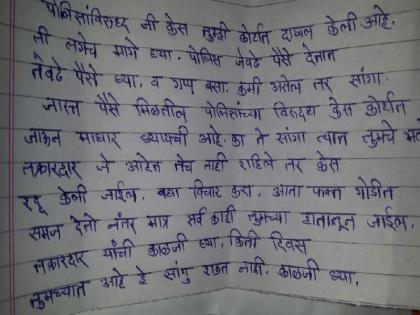 पोलिसांविरुध्द जी केस तुम्ही कोर्टात दाखल केली आहे.
ती लगेच मागे घ्या. पोलिस जेवढे पैसे देतात
तेवढे पैसे घ्या. व गप्प बसा. कमी असेल तर सांगा.
जास्त पैसे मिळतील पोलिसांच्या विरुध्दचा केस कोर्टात
जाऊन माघार घ्यायची आहे. का ते सांगा त्यात तुमचे
तक्रारदार जे आहेत तेच नाही राहिले तर केस
रद्द केली जाईल. बघा विचार करा. आता फक्त गोडीत
समज देतो नंतर मात्र सर्व काही तुमच्या हातातून जाईल.
तक्रारदार यांची काळजी घ्या. किती दिवस
तुमच्यात आहे हे सांगु शकत नाही. काळजी घ्या.